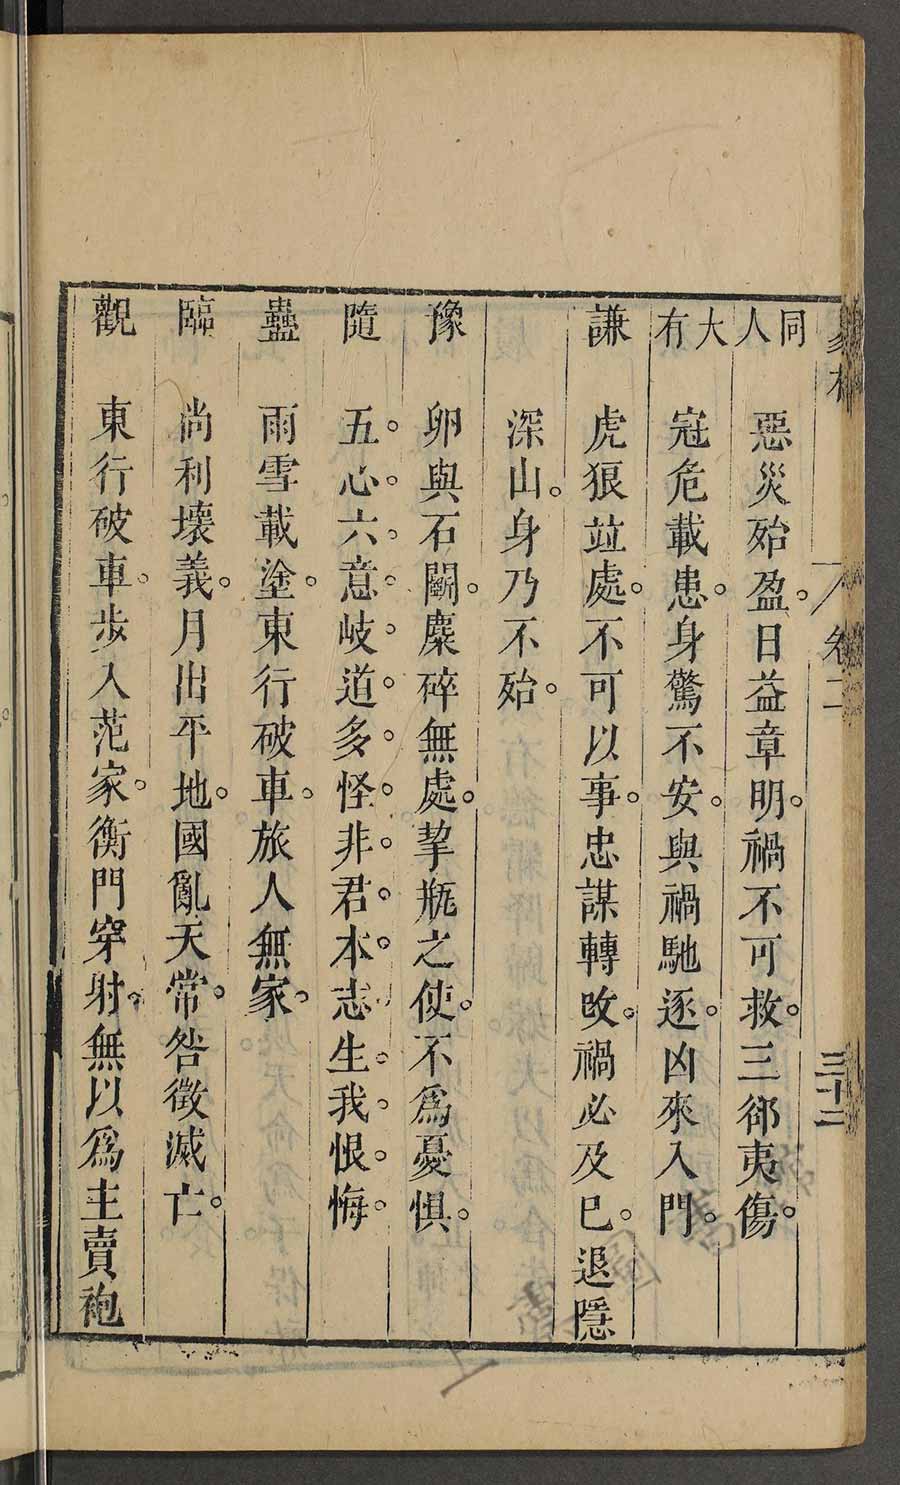 易林 卷二 三十二
同人 惡災殆盈。日益章明。禍不可救。三郤夷傷。
大有 冠危載患。身驚不安。與禍馳逐。凶來入門。
謙 虎狼並處。不可以事。忠謀轉改。禍必及己。退隱
深山。身乃不殆。
豫 卵與石鬭。麋碎無處。挈瓶之使。不為憂惧。
隨 五。心。六。意。岐。道。多。怪。非。君。本。志。生。我。恨。悔。
蠱 雨雪載塗。東行破車。旅人無家。
臨 尚利壞義。月出平地。國亂天常。咎徵滅亡。
觀 東行破車。步入范家。衡門穿射。無以為主賣袍